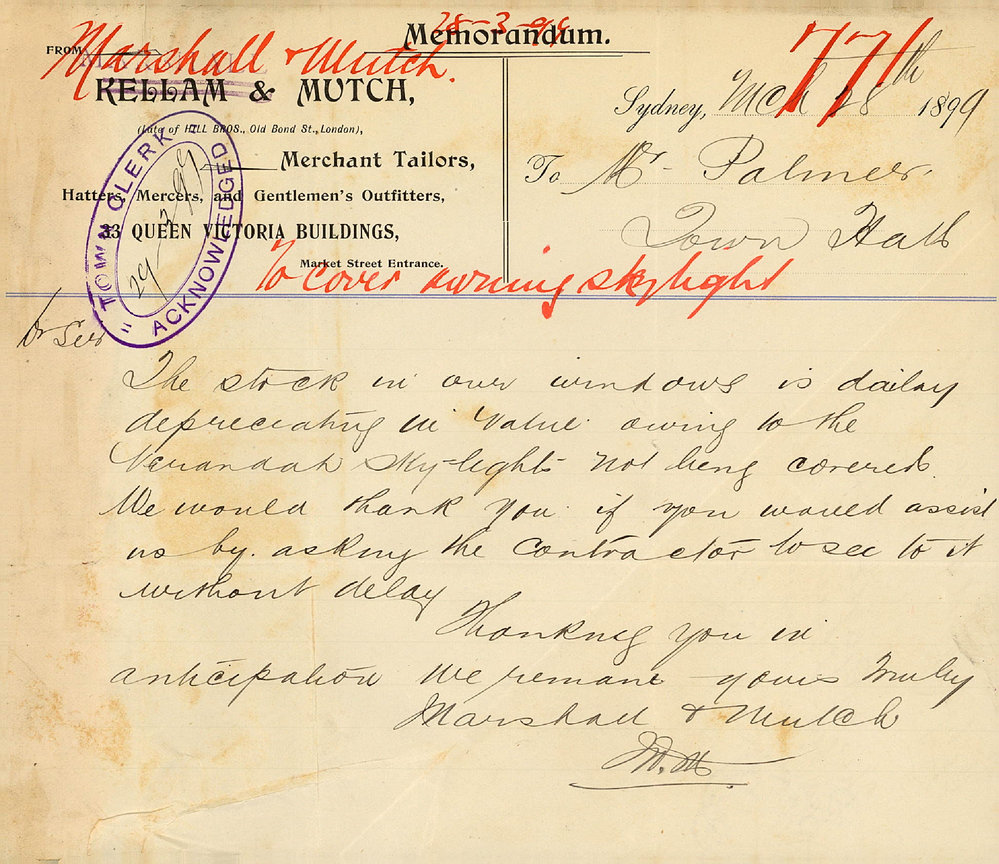 28-3-99
Memorandum.
FROM Marshall & Mutch.
KELLAM & MUTCH,
(Late of HILL BROS., Old Bond St., London),
Merchant Tailors,
Hatters, Mercers, and Gentlemen's Outfitters,
33 QUEEN VICTORIA BUILDINGS,
Market Street Entrance.
771
Sydney, Mch 28th 1899
To Mr Palmer.
Town Hall
TOWN CLERK
29-3-99
ACKNOWLEDGED
To cover awning skylight
Dr Sir
The stock in our windows is dailay
depreciating in Value owing to the
Verandah Sky-lights not being covered
We would thank you if you would assist
us by asking the Contractor to see to it
without delay
Thanking you in
anticipation We remane yours Truly
Marshall & Mutch